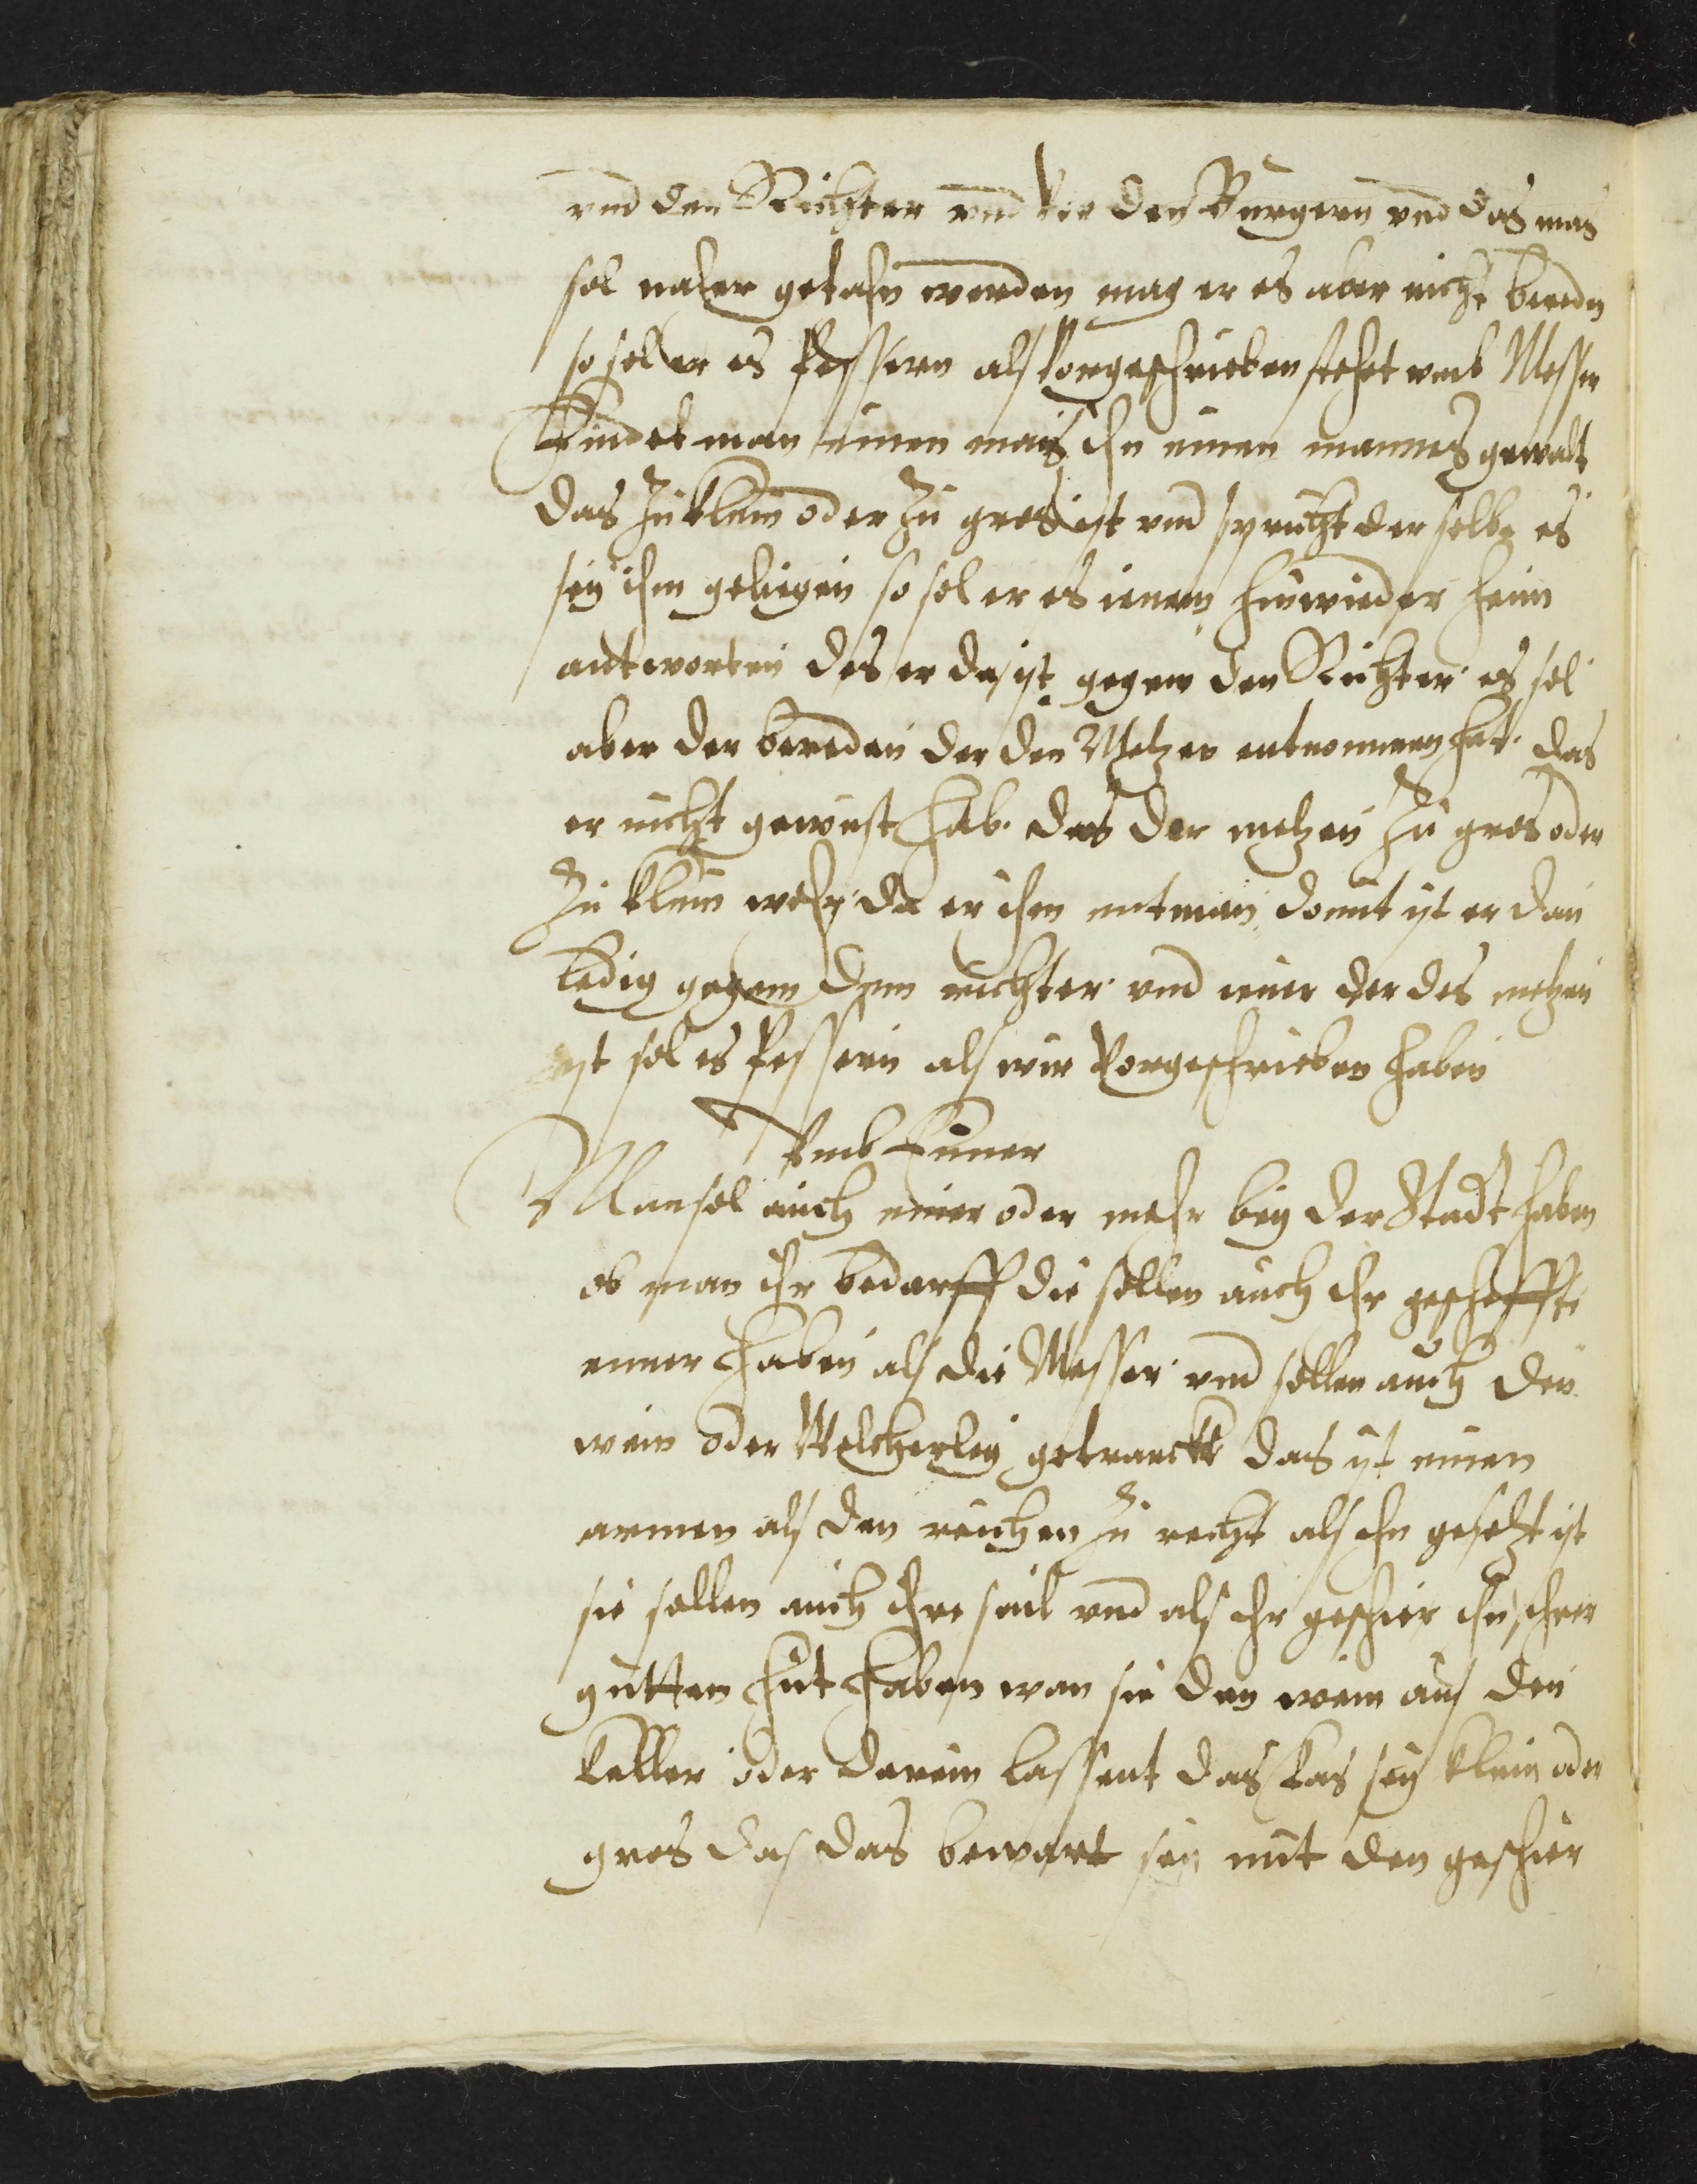 vnd den Richter vnd vor den Burgern vnd das mas
sol naher getahn werden mag er es aber nicht beredn
so sol er es Pessern als Vorgeschrieben stehet vmb Messer
Findet man einen mas ihn einen mannes gewalt
das zu klein oder zu gros ist vnd spricht der selbe es
sey ihm geliegen so sol er es ienem hinwieder heim
antworten des er da ist gegen den Richter es sol
aber der bereden der den Metzen entnommen hat das
er nicht gewust hab das der metzen zu gros oder
zu klein wehr da er ihm entnam domit ist er dan
ledig gegem dem richter vnd iener der des metzen
ist sol es Pessern als wir Vorgeschrieben haben
Vmb Eimer
Man sol auch einer oder mehr bey der Stadt haben
ob man ihr bedarff die sollen auch ihr gescheffte
enner haben als die Messer vnd sollen auch den
wein oder Welcherley getranckt das ist einen
armen als den reichen zu recht als ihn gesetzt ist
sie sollen auch ihre seil vnd als ihr geschier ihn ihrer
gutten hut haben wan sie den wein aus den
keller oder darein lassent das vas sey klein oder
gros das das bewart sey mit den geschier